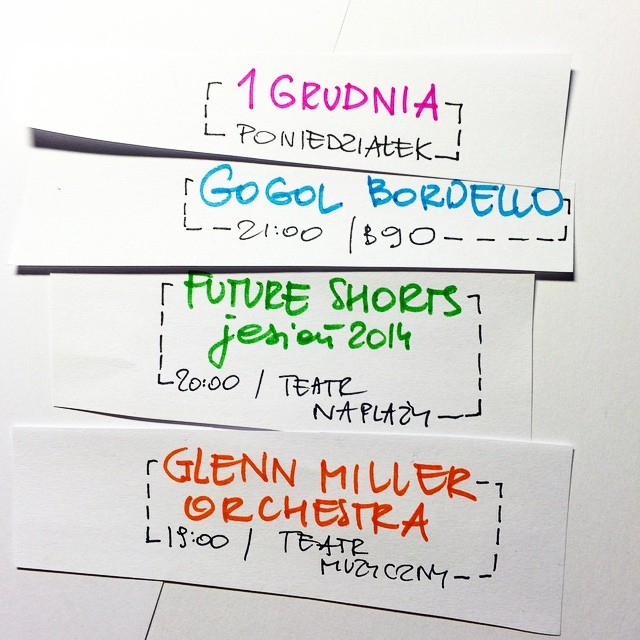 1 GRUDNIA
PONIEDZIAŁEK
GOGOL BORDELLO
21:00 / B90
FUTURE SHORTS
jesień 2014
20:00 / TEATR
NA PLAŻY
GLENN MILLER
ORCHESTRA
19:00 / TEATR
MUZYCZNY